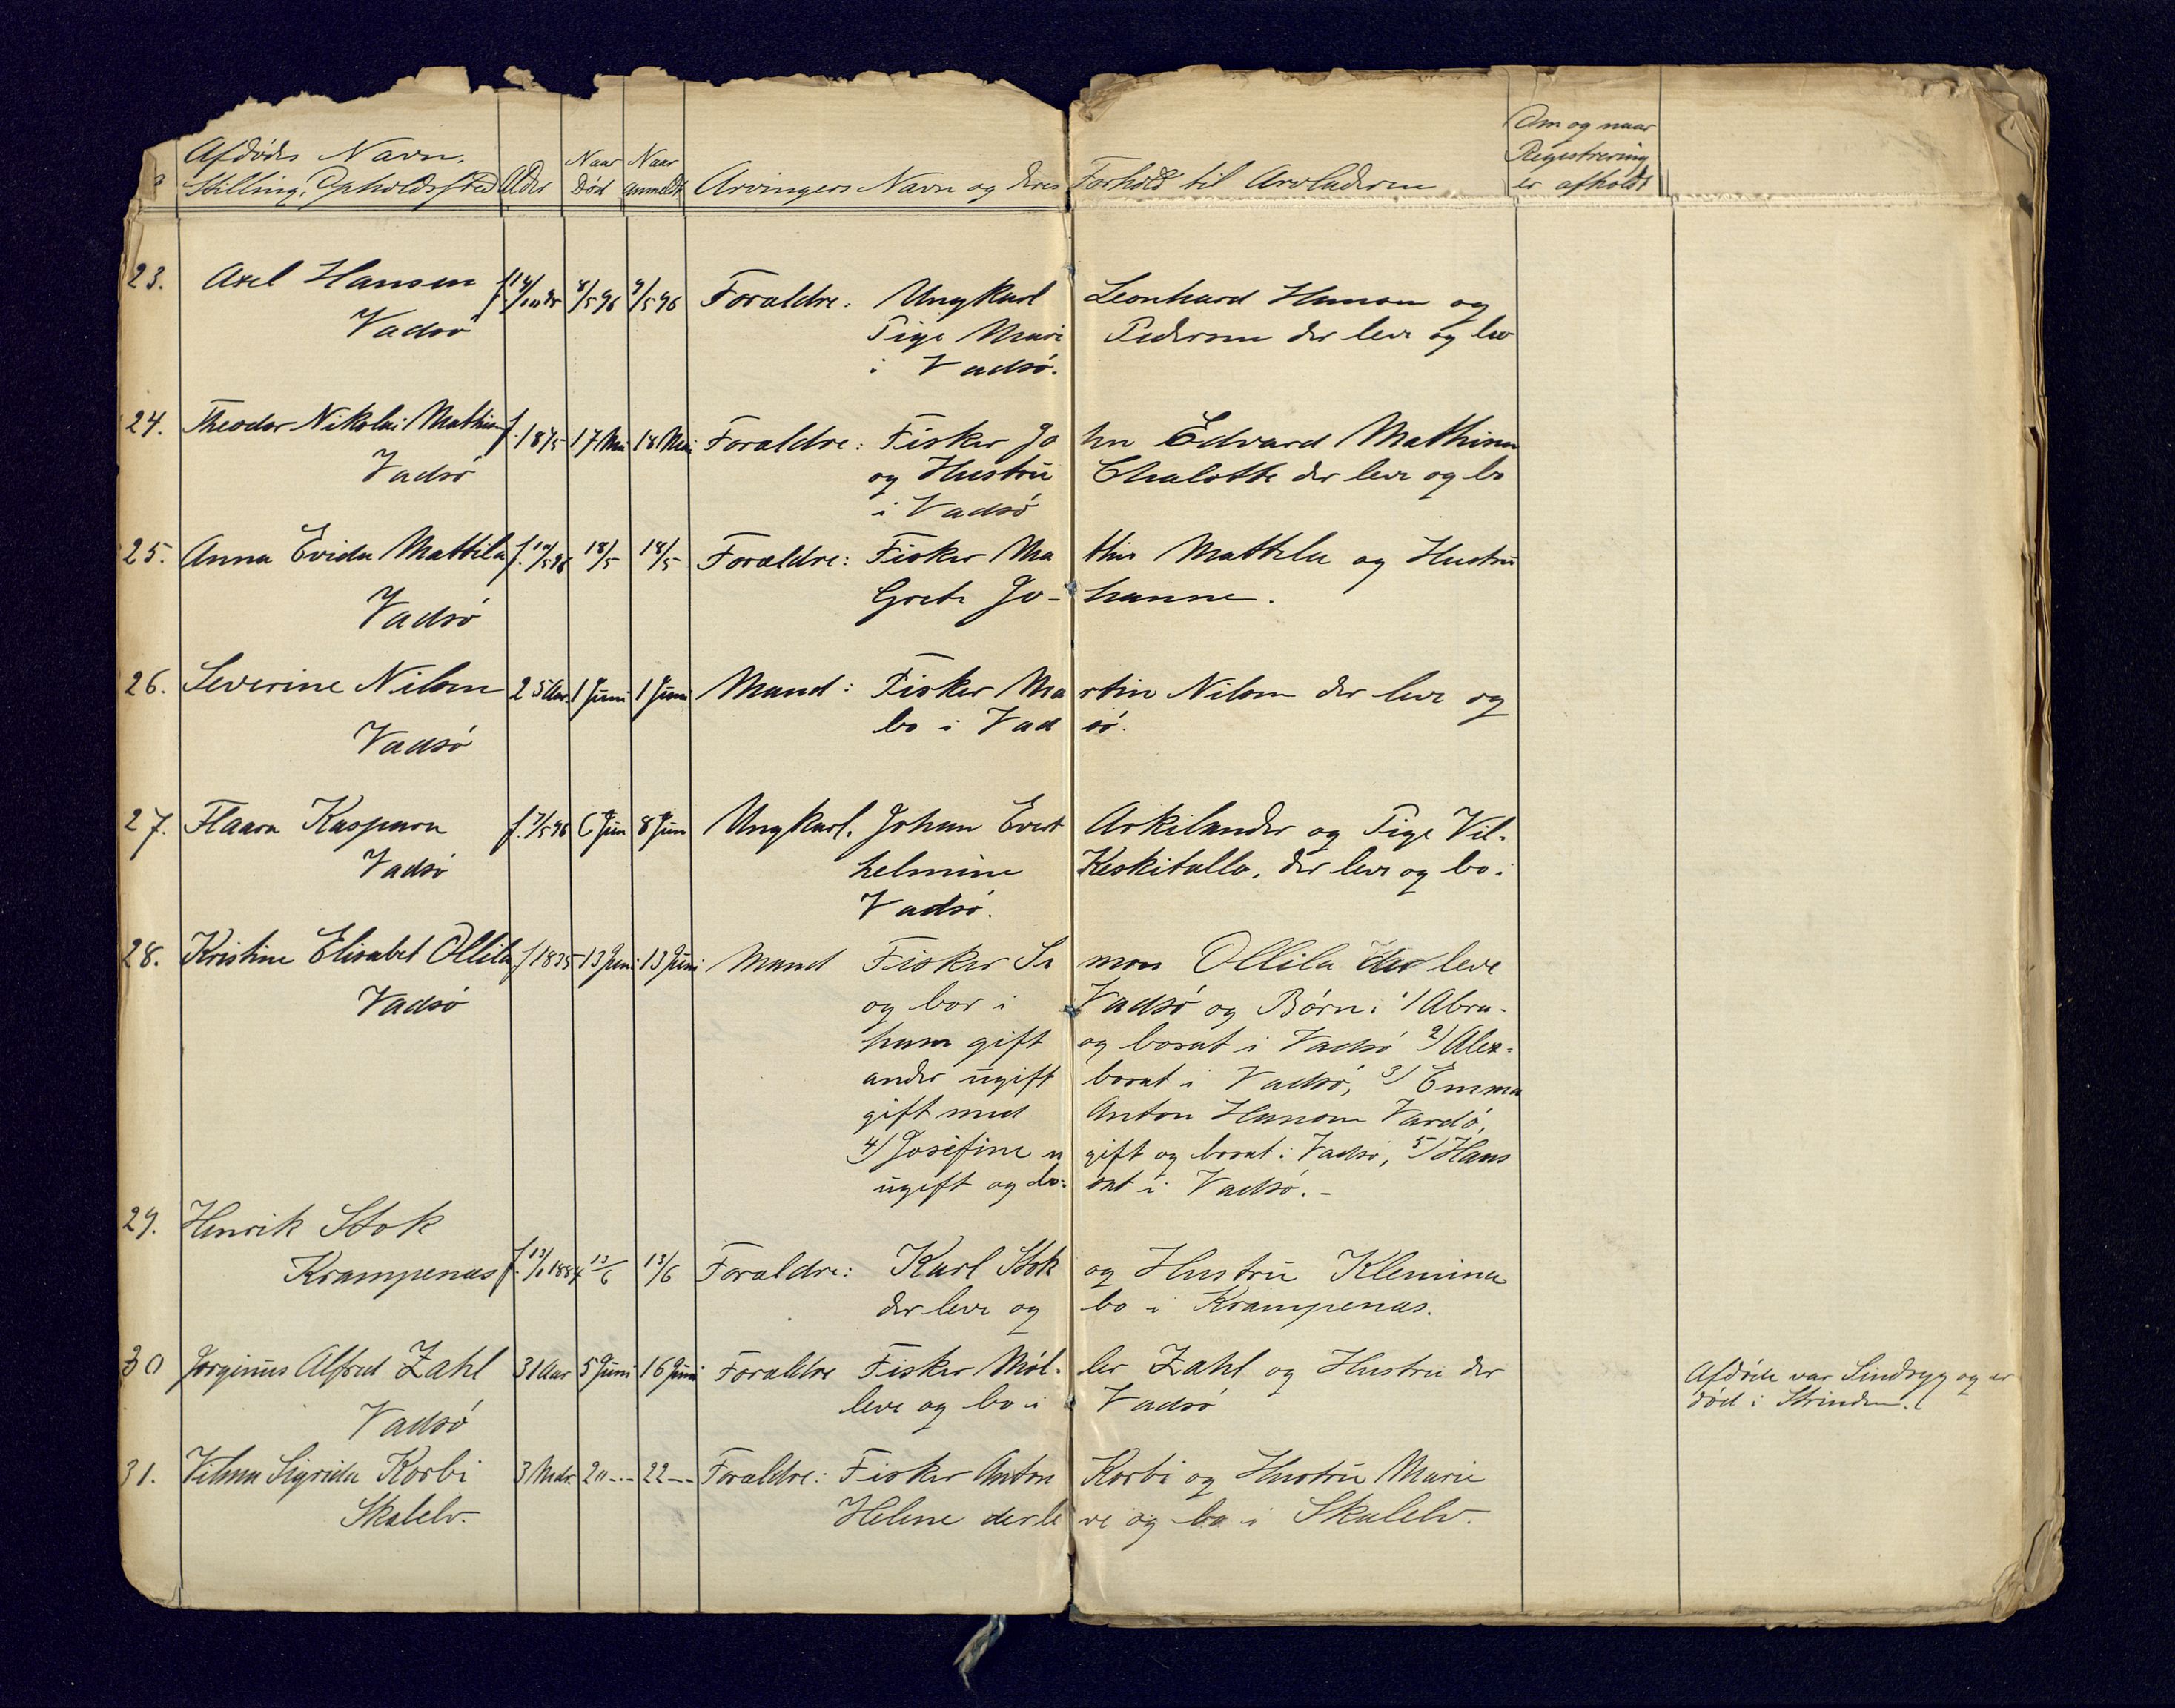 Afdødes Navn.
Stilling, Opholdssted Alder Naar Død Naar anmeldt Arvingers Navn og deres Forhold til Arvladeren Om og naar Registrering er afholdt
23. Axel Hansen 8/5 96 9/5 96 Forældre: Ungkarl Leonhard Hansen og
Vadsö Pige Marie Pedersen der leve og bo
i Vadsö.
24. Theodor Nikolai Mathisen f. 18/5 17 Mai 18 Mai Forældre: Fisker John Edvard Mathisen
Vadsö og Hustrü Chalotte der leve og bo
i Vadsö
25. Anna Evida Mattila 18/5 18/5 Forældre: Fisker Mathis Mattila og Hustrü
Vadsö Grete Jo-hanne.
26. Severine Nilsen 25 Aar 1 Juni 1 Juni Mand: Fisker Martin Nilsen der leve og
Vadsö bo i Vadsö.
27. Flaara Kaspara f. 7/5 96 6 Jun 8 Jun Ungkarl. Johan Evert Askilander og Pige Vil-
Vadsö helmine Keskitallo, der leve og bo i
Vadsö.
28. Kristine Elisabet Ollila f 1835 13 Juni 13 Juni Mand Fisker Simon Ollila der leve
Vadsö og bor i Vadsö og Børn: 1/ Abra-
ham gift og bosat i Vadsö 2) Alex-
ander ügift bosat i Vadsö, 3) Emma
gift med Anton Hansen Vardö,
4) Josefine ugift og bosat i Vadsö, 5) Hans
ügift og bosat i Vadsö. -
29. Henrik Stok
Krampenæs 13/6 13/6 Forældre: Karl Stok og Hustrü Klemina
der leve og bo i Krampenæs.
30 Jørginus Alfred Zahl 31 Aar 5 Juni 16 Juni Forældre Fisker Möl-ler Zahl og Hustru der Afdøde var Sindsyg og er
Vadsö leve og bo i Vadsö død i Strinden.
31. Vilma Sigrida Korbi 3 Mdr. 20 --- 22 -- Forældre: Fisker Anton Korbi og Hustrü Marie
Skalelv. Helene der leve og bo i Skalelv.